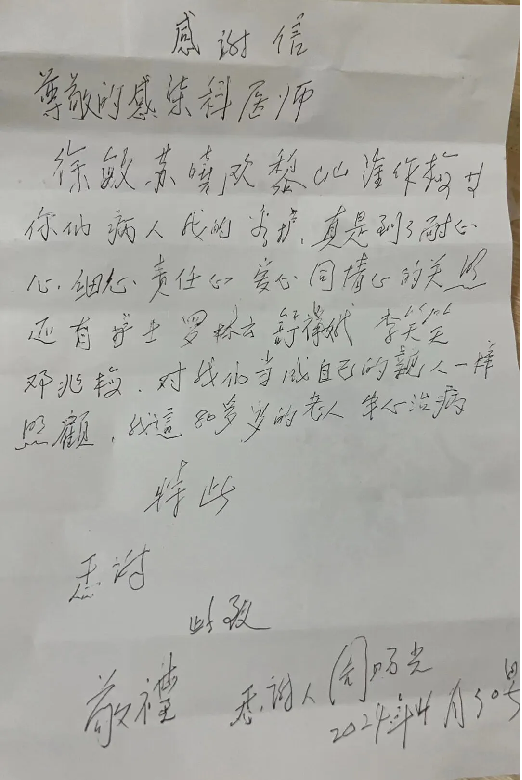 感谢信
尊敬的感染科医师
徐敏 苏 欧黎
你们病人 的 真是到了耐心
心.细心.责任心 爱心 同情心的关照
还有护士 罗林 舒 娥 李笑笑
邓兆梅.对我们当成自己的親人一样
照顧.我這80多岁的老人 安心治病
特此
感谢
此致
敬禮 感谢人 周 光
2024年4月30号